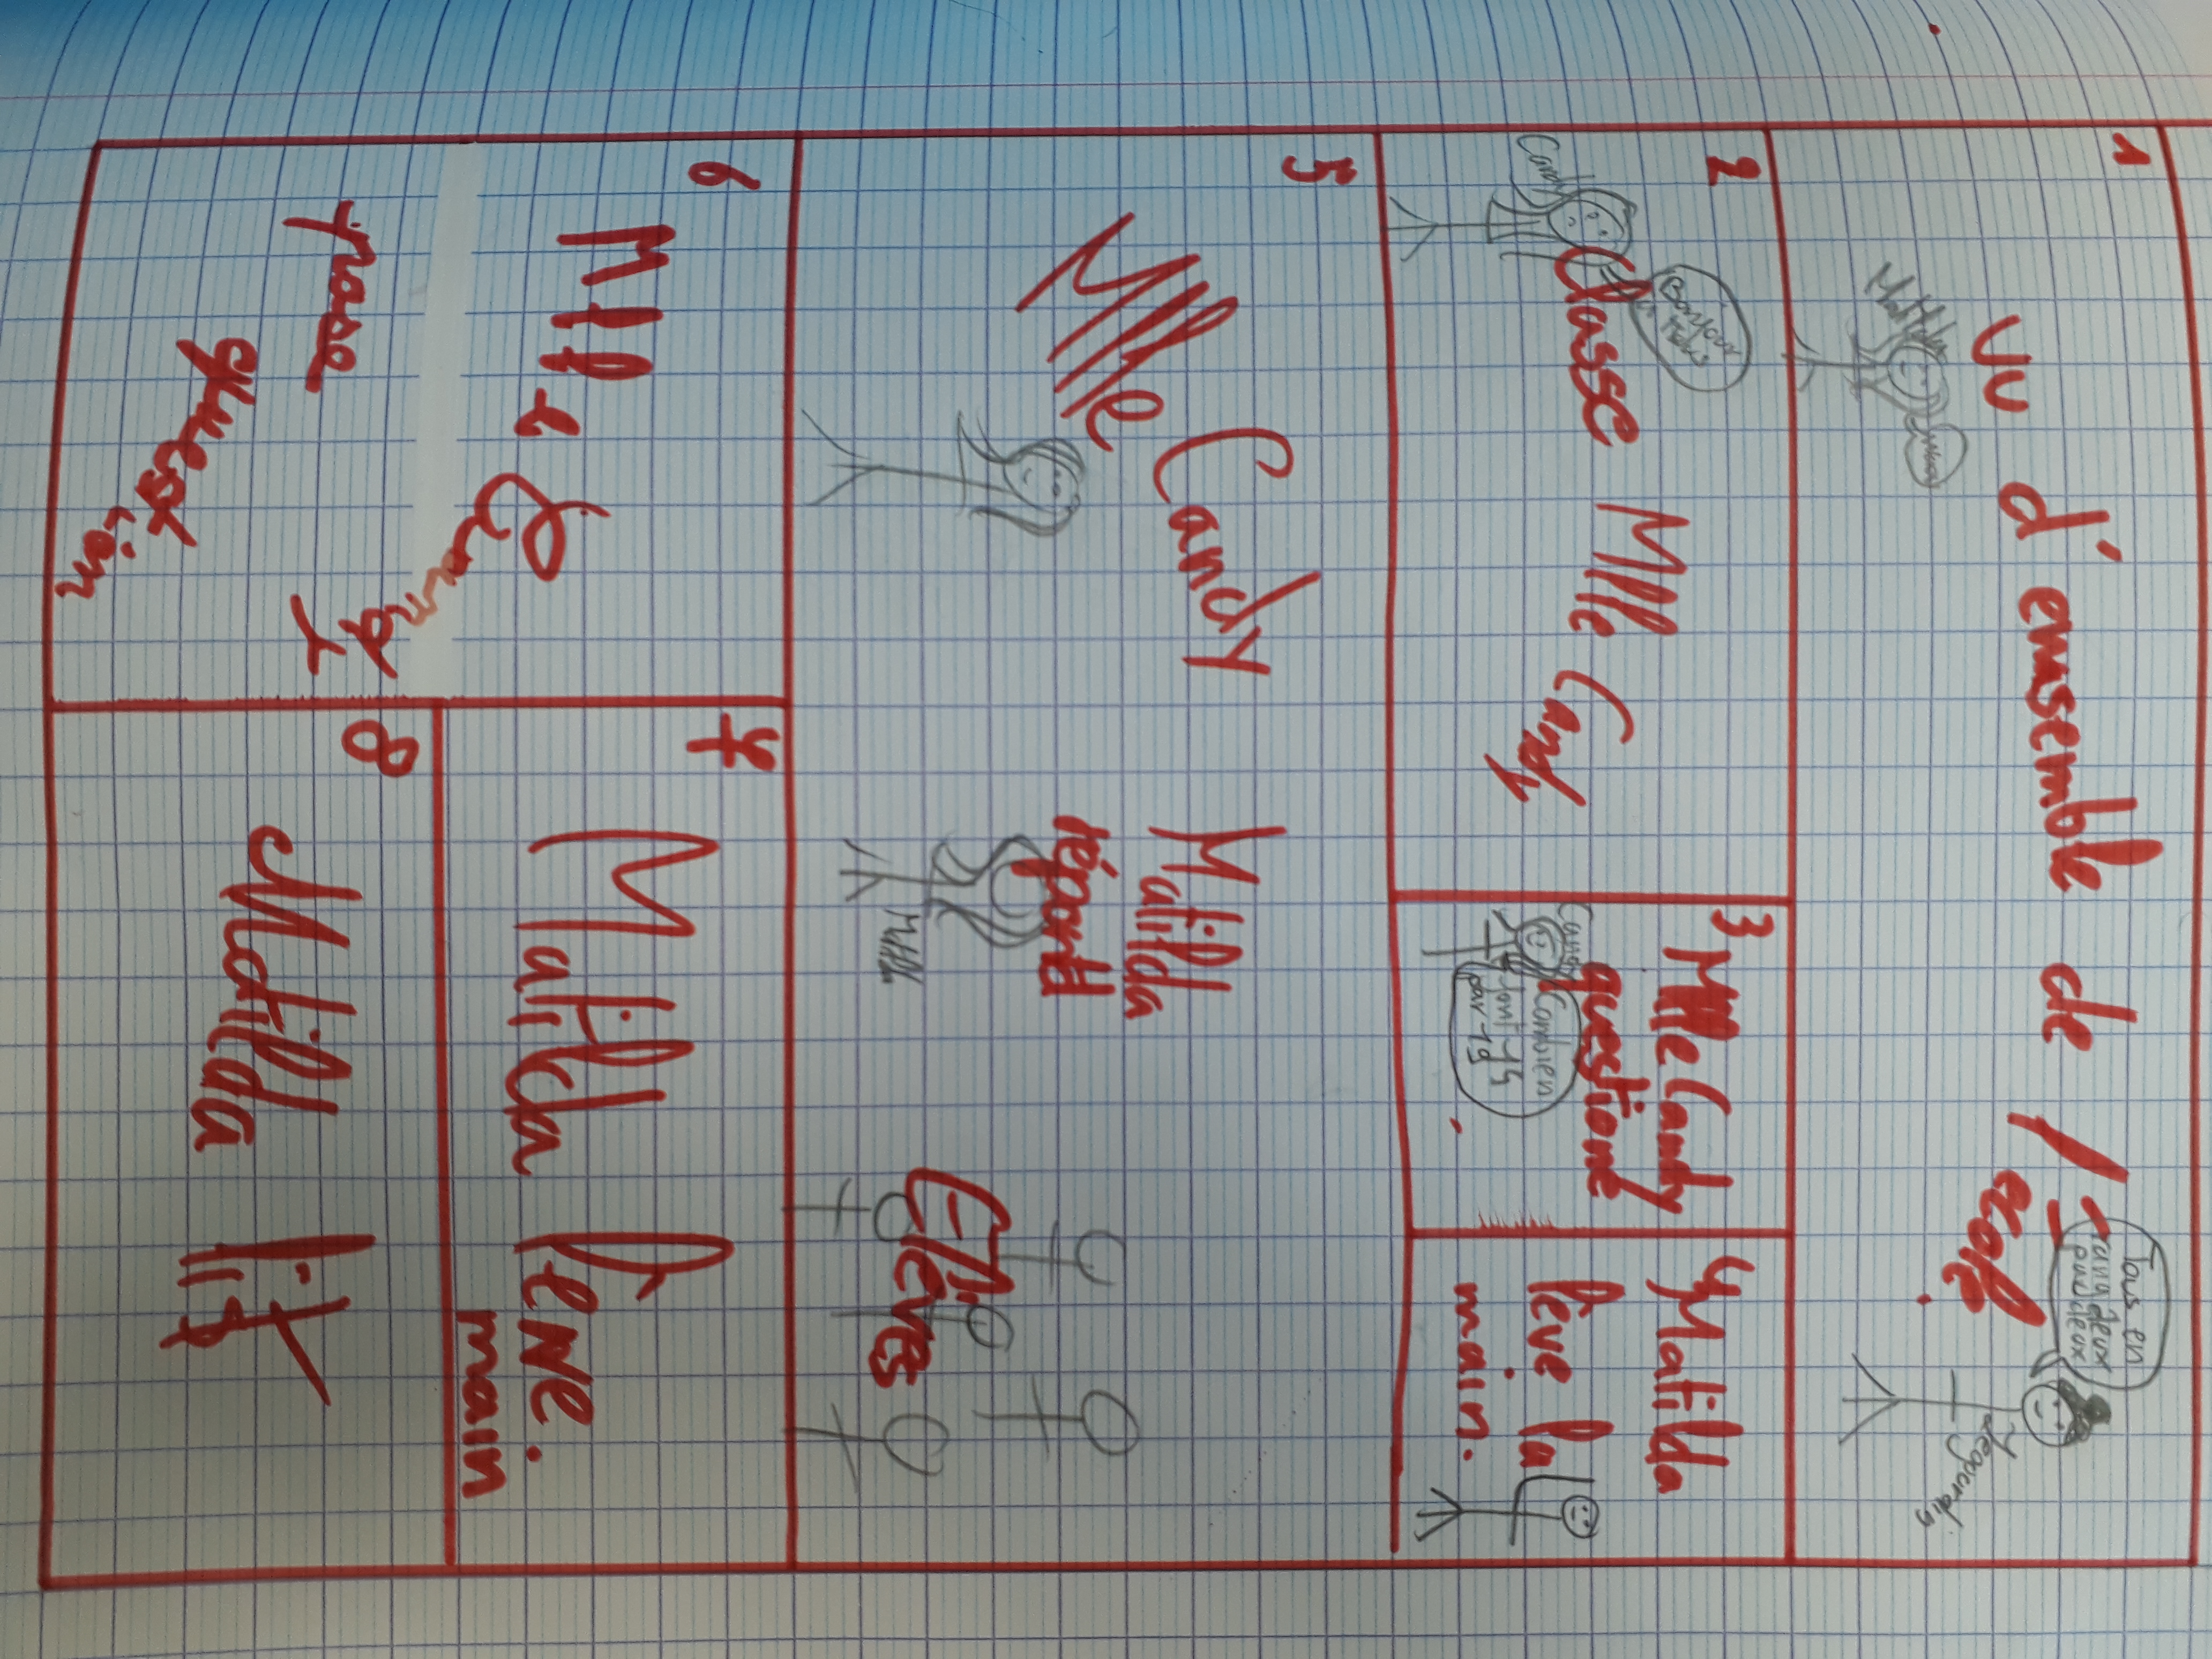 1
Vu d'ensemble de l'école.
Matilda
Tous en
rang deux
par deux
Legourdin
2
Classe Mlle Candy
Candy
Bonjour
3
Mlle Candy
questionne
Candy
Combien
font 14
par 19
4 Matilda
lève la
main.
5
Mlle Candy
Matilda
répond
Elèves
6
Mlle Candy
pose
question
7
Matilda lève.
main
8
Matilda lit